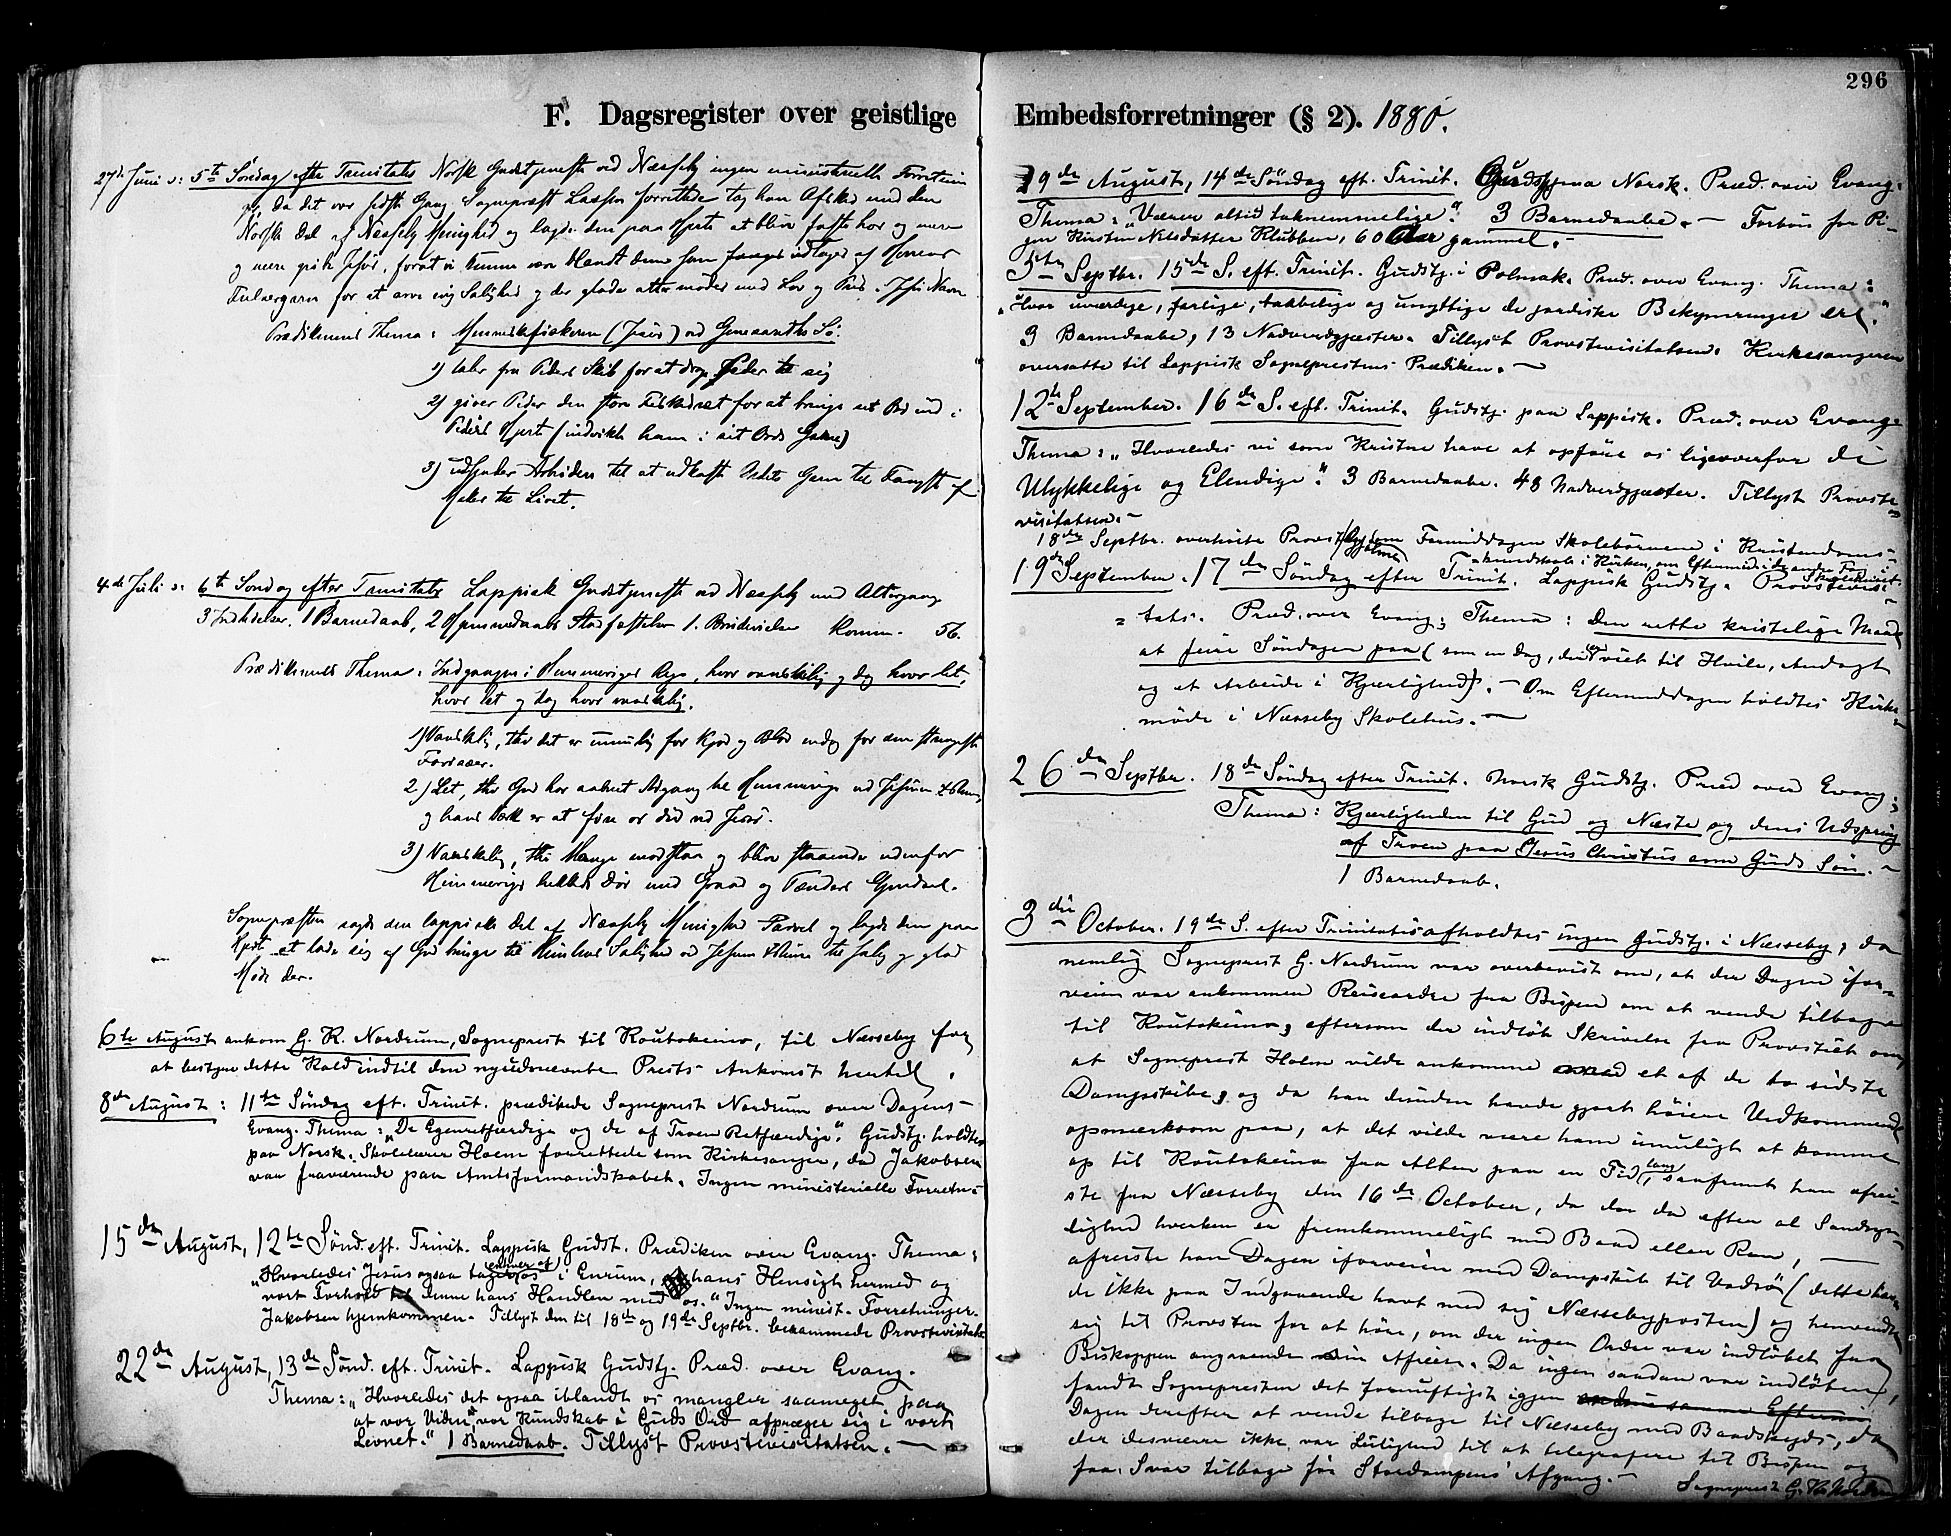 296
F. Dagsregister over geistlige Embedsforretninger (§ 2). 1880.
27de Juni : 5te Söndag efter Trinitatis Norsk Gudstjeneste ved Næsseby ingen ministerielle Forretnin
ger, da det var sidste Gang Sognepræst Lassen forrettede tog han Afsked med den
Norske Del af Næsseby Menighed og lagde den paa Hjerte at blive faste hos og mere
og mere gribe Jesus, forat vi kunne være blandt dem som fanges
for at arve evig Salighed og der glade atter mødes med Lov og Pris i Jesu Navn
Prædikenens Thema: Menneskefiskeren (Jesus) ved Genesareths Sö:
1) taler fra Peders Skib for at drage Peder til sig
2) giver Peder den store Fiskedræt for at bringe sit Bud ind i
Peders Hjerte (indvikle ham i sit Ords Garn)
3) udsender Arbeidere til at udkaste Ordets Garn til Fangst af
Sjæle til Livet.
4de Juli : 6te Sondag efter Trinitatis Lappisk Gudstjeneste ved Næsseby med Altergang
3 Indledelser. 1 Barnedaab, 2 Hjemmedaabs Stadfæstelser 1. Brudevielse Komm. 56.
Prædikenens Thema: Indgangen i Himmeriges Rige, hvor vanskelig og dog hvor let,
hvor let og dog hvor vanskelig.
1) Vanskelig, thi det er umulig for Kjød og Blod endog for den strengeste
Farisæer.
2) Let, thi Gud har aabnet Adgang til Himmerige ved Jesum Christum,
og hans Værk er at føre os did ved Jesus.
3) Vanskelig, thi Mange modstaa og blive staaende udenfor
Himmeriges lukkede Dør med Graad og Tænders Gnidsel.
Sognepræsten sagde den lappiske Del af Næsseby Menighed Farvel og lagde dem paa
Hjerte at lade sig af Gud bringe til Himlens Salighed ved Jesum Christum til salig og glad
Møde der.
6te August ankom G. R. Nordrum, Sogneprest til Koutokeino, til Næsseby for
at bestyre dette Kald indtil den nyudnævnte Prests Ankomst hertil.
8de August: 11te Söndag eft. Trinit. prædikede Sogneprest Nordrum over Dagens
Evang. Thema: „De Egenretfærdige og de af Troen Retfærdige". Gudstj. holdtes
paa Norsk. Skolelærer Holm forrettede som Kirkesanger, da Jakobsen
var fraværende paa Amtsformandskabet. Ingen ministerielle Forretn:
15de August, 12te Sönd. eft. Trinit. Lappisk Gudst. Prædiken over Evang. Thema:
„Hvorledes Jesus ogsaa tager enhver af os i Enrum, hans Hensigt hermed og
vort Forhold til denne hans Handlen med os." Ingen minist. Forretninger.
Jakobsen hjemkommen. Tillyst den til 18de og 19de Septbr. berammede Provstevisitats
22de August, 13de Sönd. eft. Trinit. Lappisk Gudstj. Præd. over Evang.
Thema: „Hvorledes det ogsaa iblandt os mangler saameget paa
at vor Viden, vor Kundskab i Guds Ord afpræger sig i vort
Levnet." 1 Barnedaab. Tillyst Provstevisitatsen. —
29de August, 14de Söndag eft. Trinit. Gudstjena Norsk. Præd. over Evang.
Thema: „Værer altid taknemmelige." 3 Barnedaabe. — Forbön for Pi-
gen Kirsten Nilsdatter Klubben, 60 Aar gammel. —
5te Septbr. 15de S. eft. Trinit. Gudstj. i Polmak. Præd. over Evang. Thema:
„Hvor uværdige, farlige, taabelige og unyttige de jordiske Bekymringer ere."
3 Barnedaabe, 13 Nadverdgjæster. Tillyst Provstevisitatsen. Kirkesangeren
oversatte til Lappisk Sogneprestens Prædiken. —
12te September. 16de S. eft. Trinit. Gudstj. paa Lappisk. Præd. over Evang.
Thema: „Hvorledes vi som Kristne have at opföre os ligeoverfor de
Ulykkelige og Elendige". 3 Barnedaabe. 48 Nadverdgjæster. Tillyst Provste-
visitatsen. —
18de Septbr. overhörte Provst om Formiddagen Skolebörnene i Kristendoms-
kundskab i Kirken, om Eftermid. i de andre Fag i
Skolehuset.
19de September. 17de Söndag efter Trinit. Lappisk Gudstj. Provstevisi-
tats. Præd. over Evang. Thema: Den rette kristelige Maade
at feire Söndagen paa (som en Dag, der er viet til Hvile, Andagt
og et Arbeide i Kjærlighed). — Om Eftermiddagen holdtes Kirke-
möde i Næsseby Skolehus. —
26de Septbr. 18de Söndag efter Trinit. Norsk Gudstj. Præd. over Evang.
Thema: Kjærligheden til Gud og Næste og dens Udspring
af Troen paa Jesus Christus som Guds Sön. —
1 Barnedaab.
3die October. 19de S. efter Trinitatis afholdtes ingen Gudstj. i Næsseby, da
nemlig Sogneprest G. Nordrum var overbevist om, at der Dagen ifor-
veien var ankommen Reiseordre fra Bispen om at vende tilbage
til Koutokeino, eftersom der indlöb Skrivelse fra Provstiet om,
at Sogneprest Holm vilde ankomme med et af de to sidste
Dampskibe, og da han desuden havde gjort höiere Vedkommende
opmærksom paa, at det vilde være ham umuligt at komme
op til Koutokeino fra Alten paa en Tid lang, saafremt han afrei-
ste fra Næsseby den 16de October, da der da efter al Sandsyn-
lighed hverken er fremkommeligt med Baad eller Ren, —
afreiste han Dagen iforveien med Dampskib til Vadsö (dette havde
de ikke paa Indgaaende havt med sig Næssebyposten) og henvendte
sig til Provsten for at höre, om der ingen Ordre var indlöbet fra
Biskoppen angaaende min Afreise. Da ingen saadan var indlöben,
fandt Sognepresten det fornuftigst igjen endnu samme Eftermid
Dagen derefter at vende tilbage til Næsseby med Baadskyds, da
der desværre ikke var Leilighed til at telegrafere til Bispen og
faa Svar tilbage för Stordampens Afgang. —
Sogneprest G. R. Nordrum